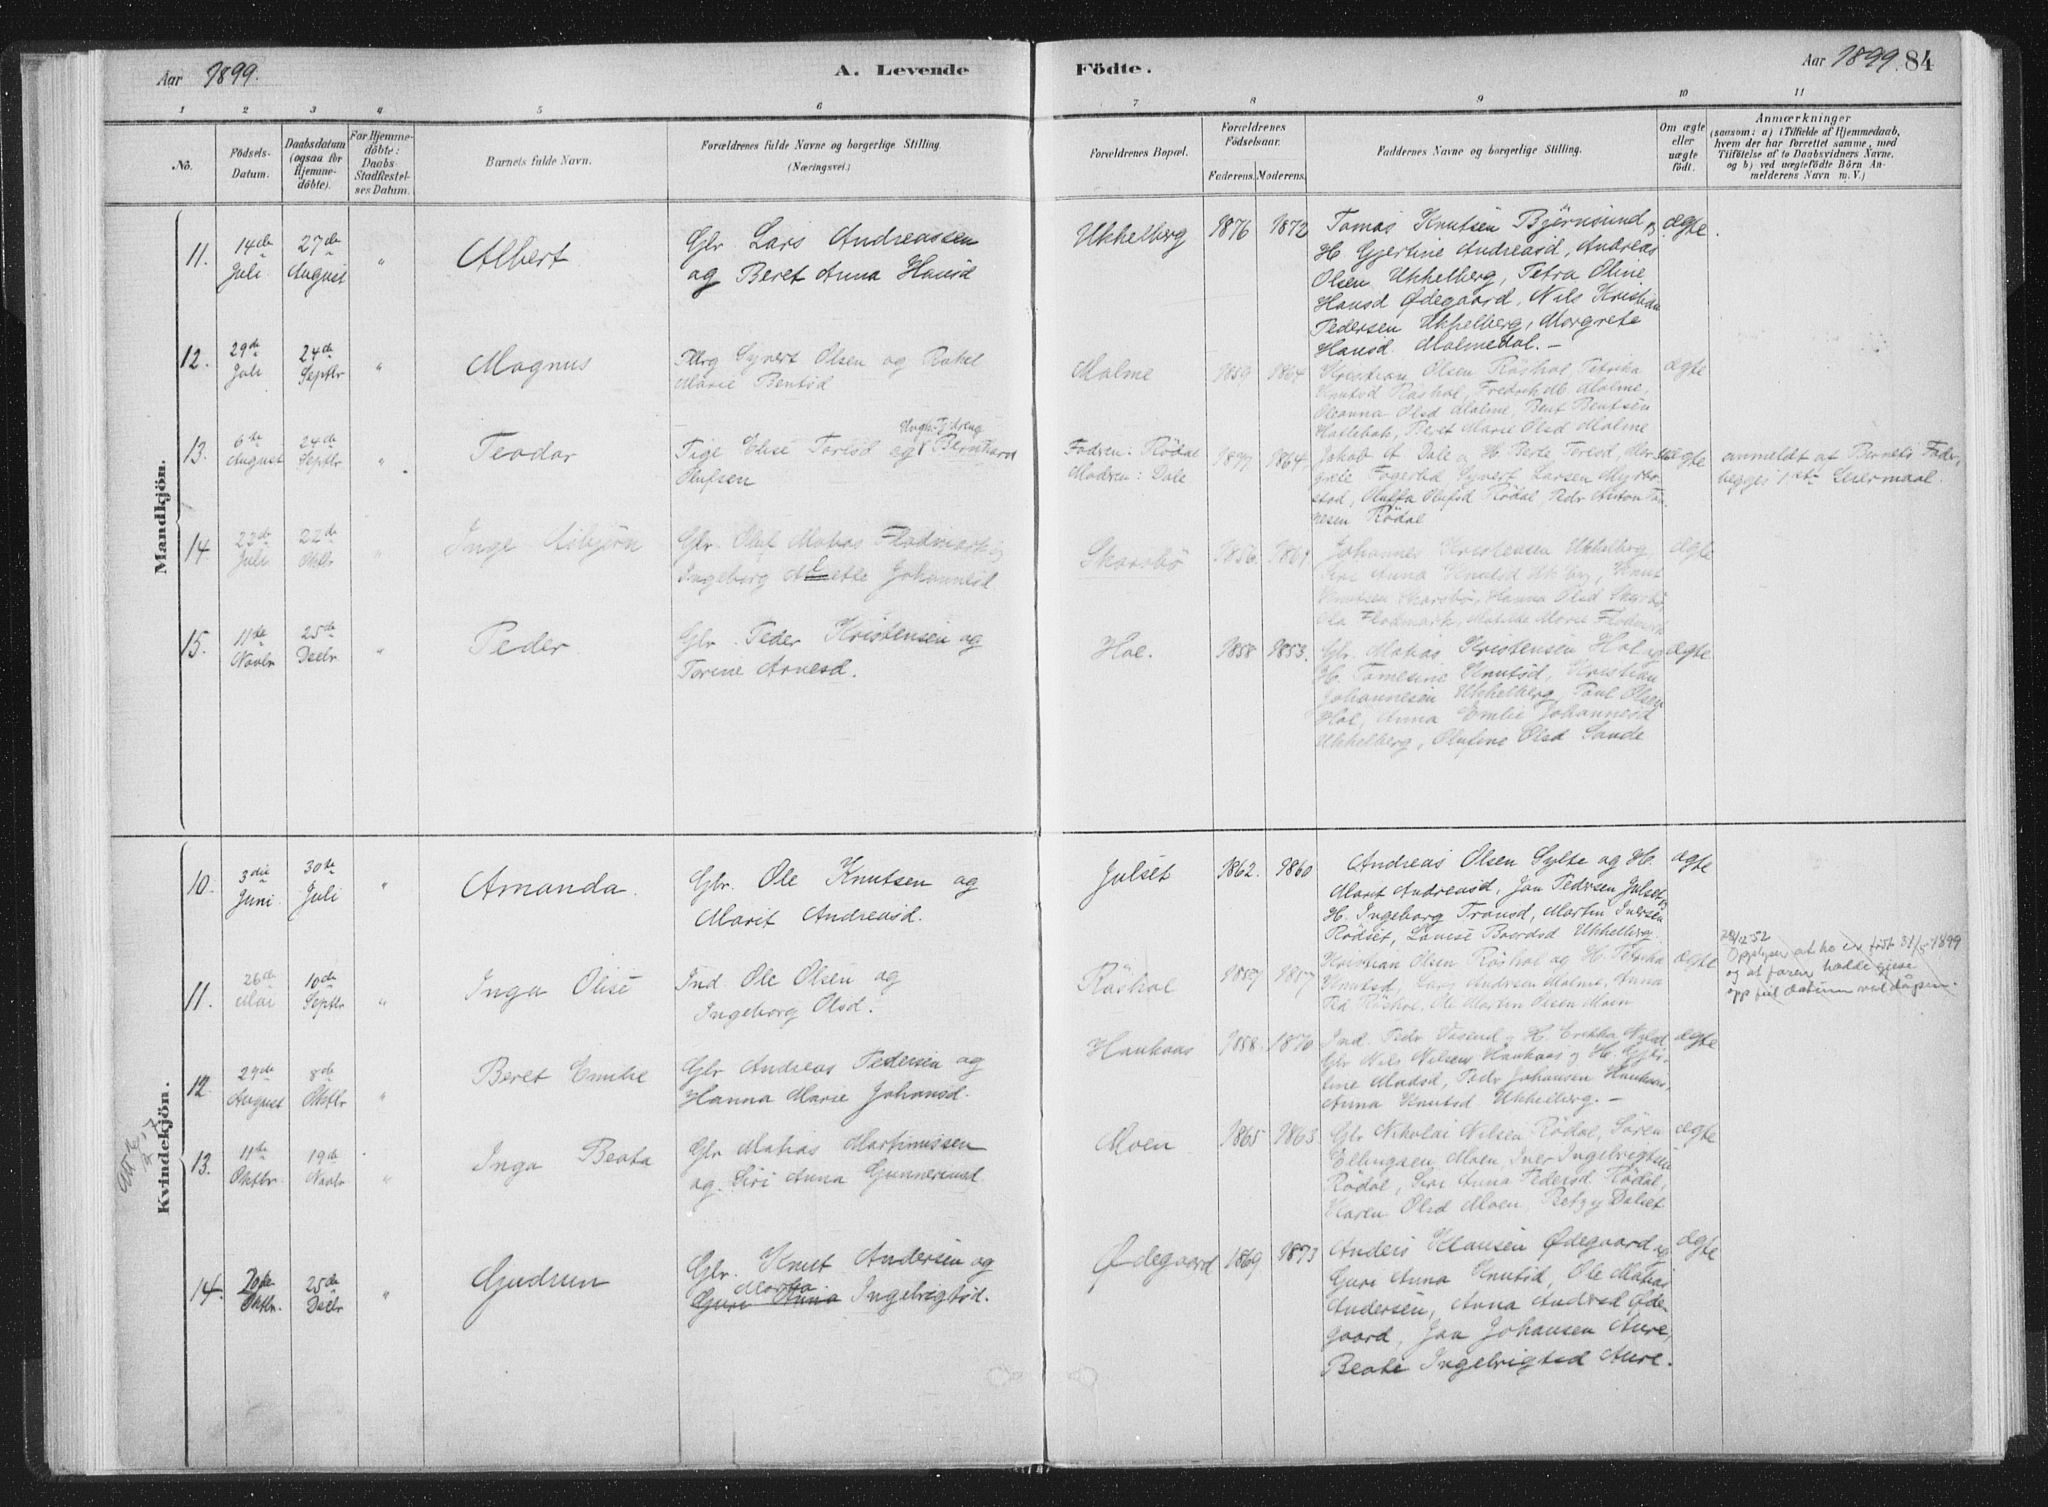 Aar 1899.
A. Levende
Födte.
Aar 1899. 84
1 2 3 4 5 6 7 8 9 10 11
No.
Födsels-
Datum.
Daabsdatum
(ogsaa for
Hjemme-
döbte).
For Hjemme-
döbte:
Daabs-
Stadfæstel-
ses Datum.
Barnets fulde Navn.
Forældrenes fulde Navne og borgerlige Stilling
(Næringsvei.)
Forældrenes Bopæl.
Forældrenes
Födselsaar.
Faderens. Moderens.
Faddernes Navne og borgerlige Stilling.
Om ægte
eller
uægte
födt.
Anmærkninger
(saasom: a) i Tilfælde af Hjemmedaab,
hvem der har forrettet samme, med
Tilföielse af to Daabsvidners Navne,
og b) ved uægtefödte Börn An-
melderens Navn m. V.)
Mandkjön.
11.
14de
Juli
27de
August
"
Albert
Gbr. Lars Andreassen
og Beret Anna Hansd
Ukkelberg
1876
1872
Tomas Knutsen Bjørnsund og
H. Gjertine Andreasd, Andreas
Olsen Ukkelberg, Petra Oline
Hansd Ødegaard, Nils Kristian
Pedersen Ukkelberg, Margrete
Hansd. Malmedal. —
ægte
12.
29de
Juli
24de
Septbr
"
Magnus
Syvert Olsen og Rakel
Marie Bentsd
Malme
1859
1864
Kristian Olsen Råshol, Petrika
Knutsd Råshol, Fredrik Malme,
Oleanna Olsd Malme, Bent Bentsen
Hatlebak, Beret Marie Olsd Malme
ægte
13.
6te
August
24de
Septbr
"
Teodor
Pige Elise Toresd og Ungk. Bernhard
Olufsen
Fadren: Rödal
Modren: Dale
1877
1864
Jakob A. Dale og H. Berte Toresd,
Fagerlid, Syvert Larsen Myrbo-
stad, Oluffa Olufsd Rödal, Pedr Anton
Rödal
uægte
anmeldt af Barnets Fader,
begges 1ste Leiermaal.
14
23de
Juli
22de
Oktbr
"
Inge Asbjörn
Gbr. Oluf Matias Flodmark og
Ingeborg Mette Johannesd.
Skarsbö
1856.
1861
Johannes Kristensen Ukkelberg,
Siri Anna Knutsd, Knut
Knutsen Skarsbö, Hanna Olsd Skarsbö,
Ola Flodmark, Matilde Marie Flodmark
ægte
15.
11de
Novbr
25de
Decbr.
"
Peder.
Gbr. Peder Kristensen og
Torine Arnesd.
Hol.
1858
1853.
Gbr. Matias Kristensen Hol og
H. Tomesine Knutsd, Kristian
Johannesen Ukkelberg, Paul Olsen
Hol, Anna Emlie Johannesd
Ukkelberg, Olufine Olsd Sande
ægte
Kvindekjön.
10.
3die
Juni.
30te
Juli
"
Amanda.
Gbr. Ole Knutsen og
Marit Andreasd.
Julset
1862.
1860
Andreas Olsen Sylte og H.
Marit Andreasd, Jan Pedersen Julset og
H. Ingeborg Tronsd, Martin Iversen
Rödset, Louise Baardsd Ukkelberg.
ægte
11.
26de
Mai
10de
Septbr
"
Inga Olise
Ind. Ole Olsen og
Ingeborg Olsd.
Råshol
1859
1857
Kristian Olsen Råshol og H. Petrika
Knutsd, Lars Andersen Malme, Anna
Råshol, Ole Martin Olsen Moen
ægte
29/12-52
Opplyser at ho er født 31/5-1899
og at faren hadde gjeve
opp feil datum ved dåpen.
12
29de
August
8de
Oktbr
"
Beret Emilie
Gbr Andreas Pedersen og
Hanna Marie Johansd.
Haukaas
1858.
1870
Ind. Pedr Vasend, H. Erikka Nilsd,
Gbr Nils Nilsen Haukaas og H. Gjer-
tine Madsd, Pedr Johansen Haukaas,
Anna Knutsd Ukkelberg. —
ægte
13.
11te
Oktbr.
19de
Novbr
"
Inga Beata
Gbr Matias Martinussen
og Siri Anna Gunnersd.
Moen
1865
1863
Gbr Nikolai Nilsen Rödal, Sören
Ellingsen Moen, Iver Ingebrigtsen
Rödal, Siri Anna Pedersd. Rödal,
Karen Olsd Moen, Betzy Dalset
ægte
14.
20de
Oktbr.
25de
Decbr
"
Gudrun
Gbr. Knut Andersen og
Marta
Guri Anna Ingebrigtsd.
Ødegaard
1869
1873
Anders Klausen Ødegaard og
Guri Anna Knutsd, Ole Matias
Andersen, Anna Andersd Øde-
gaard, Jan Johansen Aure,
Beate Ingebrigtsd Aure.
ægte